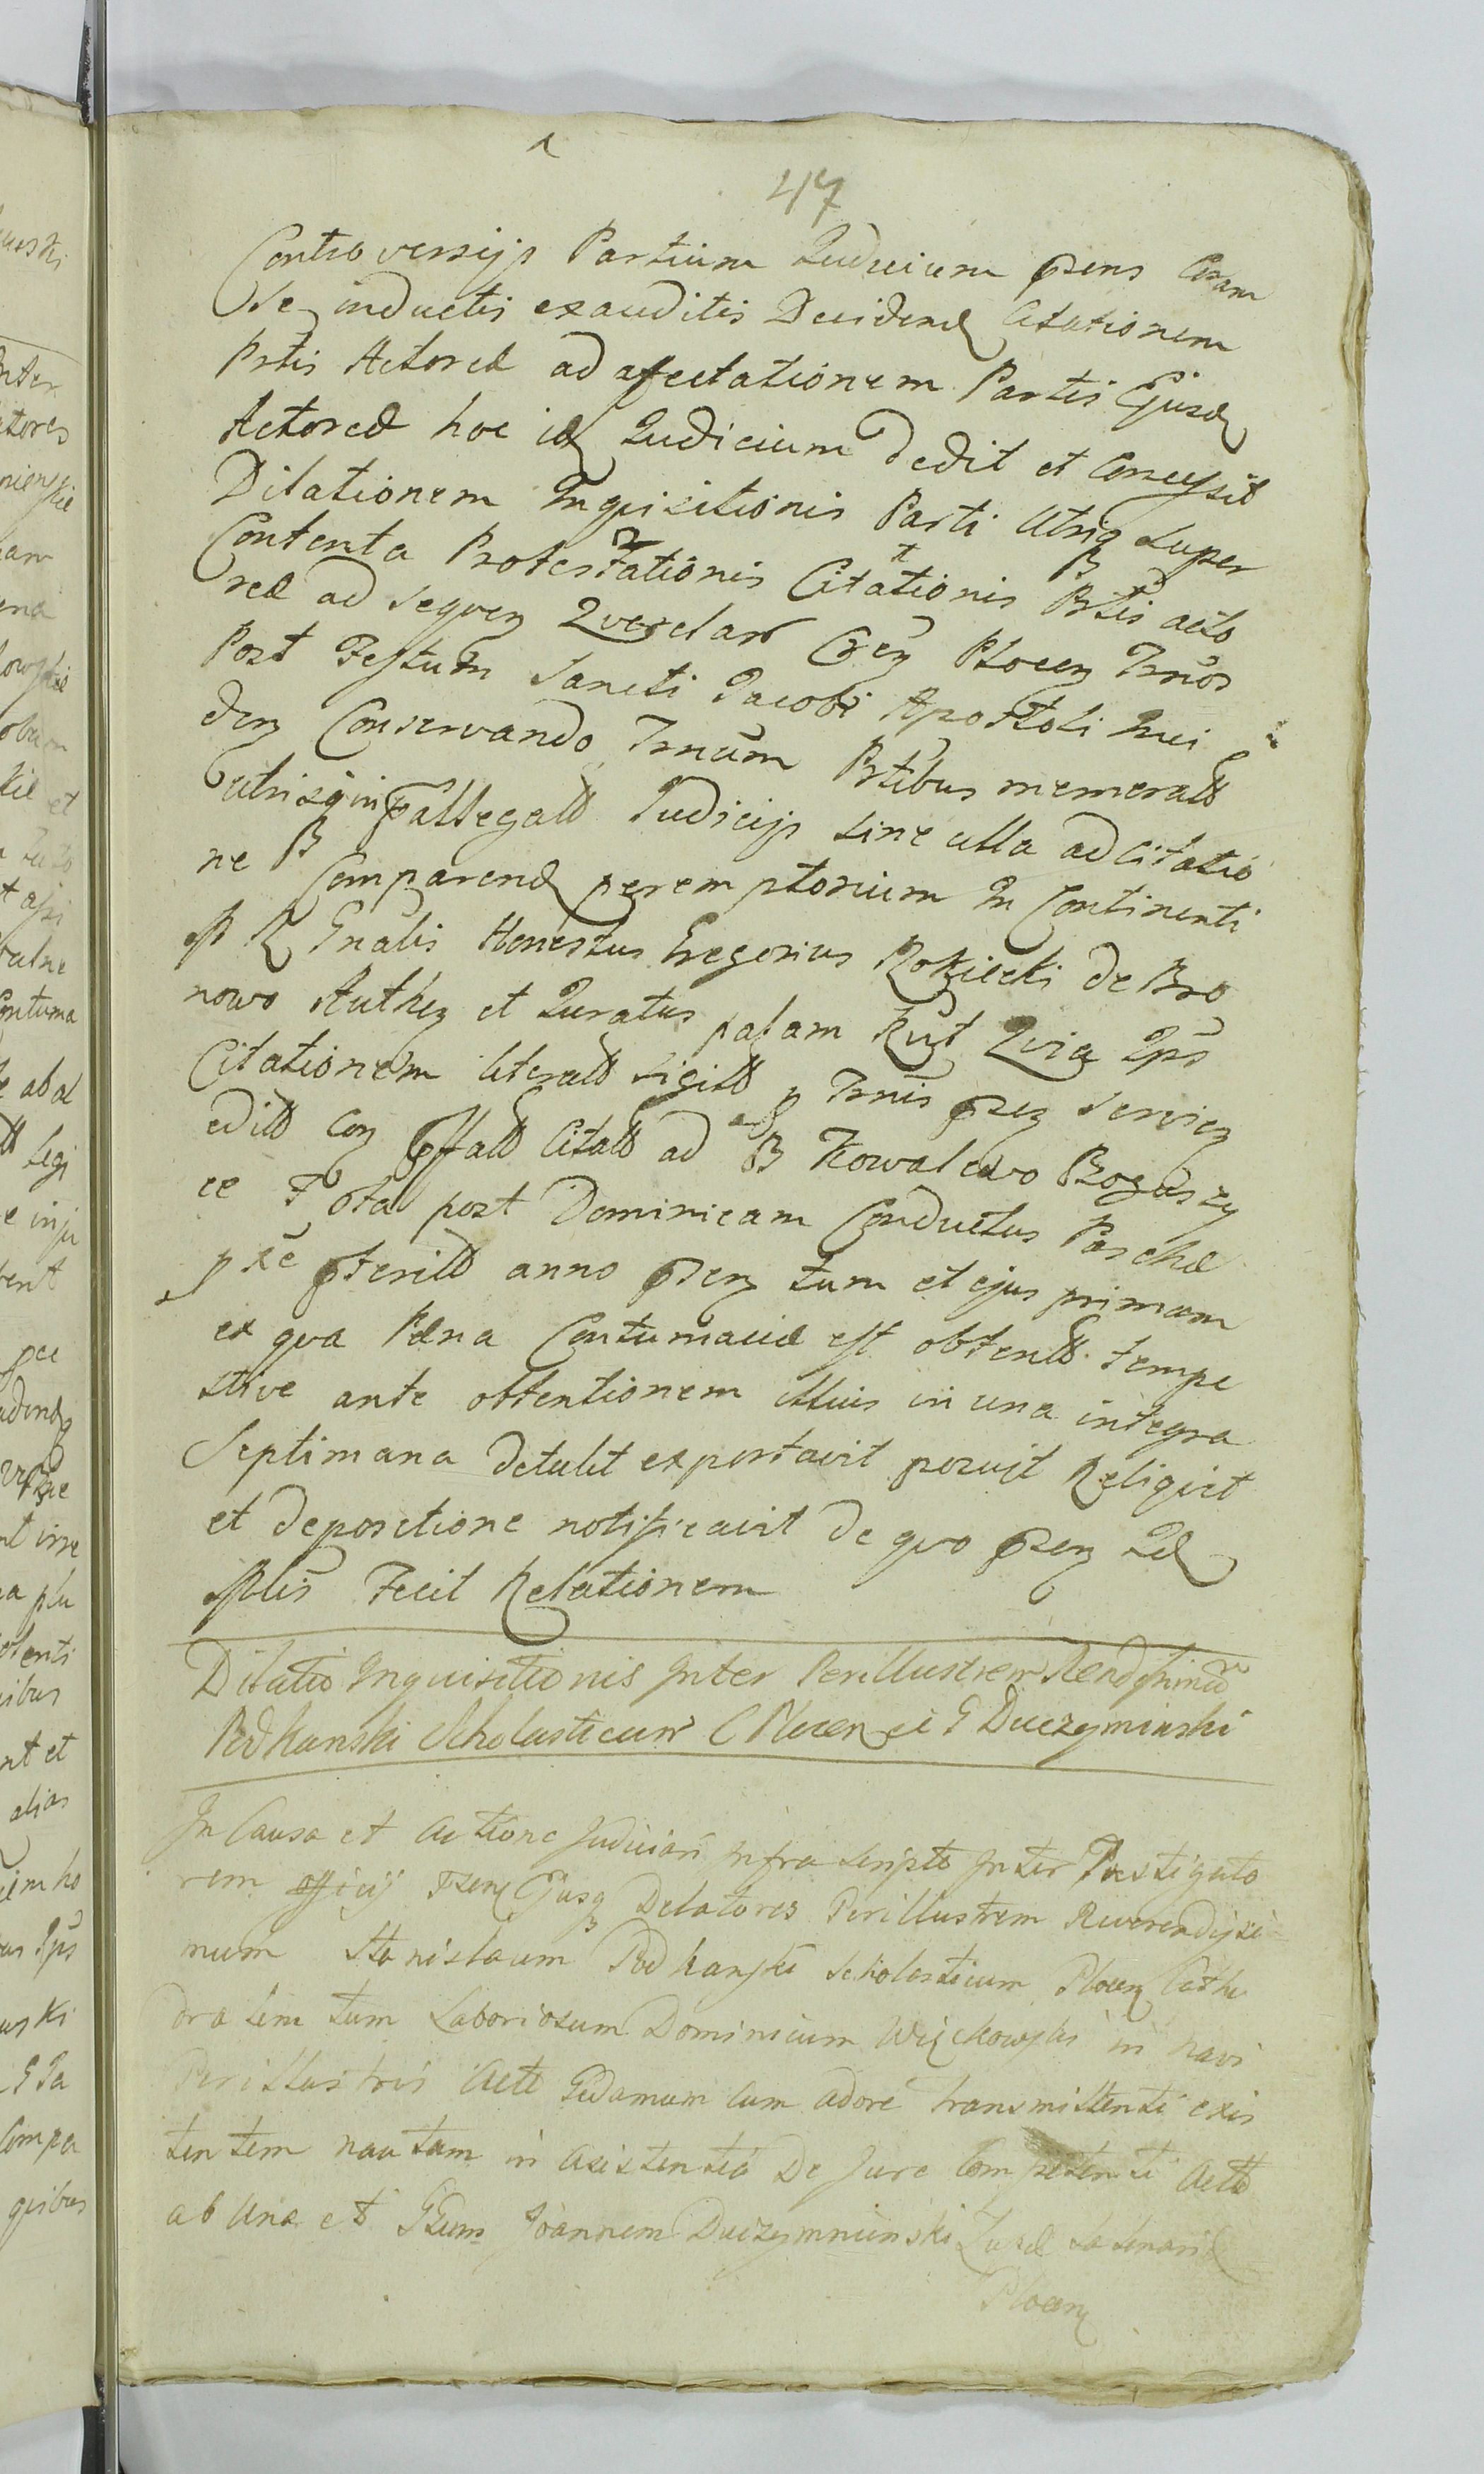 47
Controversijs Partium Judicium prens Coram
Se inductis exauditis Decidend Citationem
Prtis Actoreæ ad affectationem Partis Ejusd
Actoreæ hoc id Judicium dedit et Concessit
Dilationem Inquisitionis Parti Utriq super
Contenta Protestationis Citationis Prtis acto
reæ ad sequen Querelar Plocen Trnos
Post Festum Sancti Jacobi Apostoli
den Conservando Trnum Prtibus memeratt
utrisq in Judicijs sine ulla ad citatio
ne Comparend peremptorium In Continenti
Gnalis Honestus Gregorius Rokicki de Bro
nowo Authen et Juratus palam Quia Ips
Citationem literatt sigitt p Trnis pren servien
editt Con Citatt ad B Kowalewo Boguszy
ce F ota post Dominicam Conductus Paschæ
pxe pteritt anno pren tum et ejus primam
ex qva Pæna Contumaciæ est obtentt tempe
stive ante obtentionem illius in una integra
Septimana detulit exportavit posuit Reliqvit
et depositione notificavit de quo pren Jud
Fecit Relationem
Dilatio Inquisitionis Inter Perillustrem Rendssimum
Podkanski Scholasticum C Plocen et G Duczyminski
In Causa et Actione Judiciari infra scripto Inter Instigato
rem officij Ejusq Delatores Perillustrem Reverendissi
mum Stanislaum Podkanski Scholasticum Plocen Cathe
dralem tum Laboriosum Dominicum Więckowski in navi
Perillustris Gedanum cum adore transmittenti exis
tentem nautam in Asistentia De Jure Competenti
ab Una et Gsum Joannem Duczymninski
Plocen